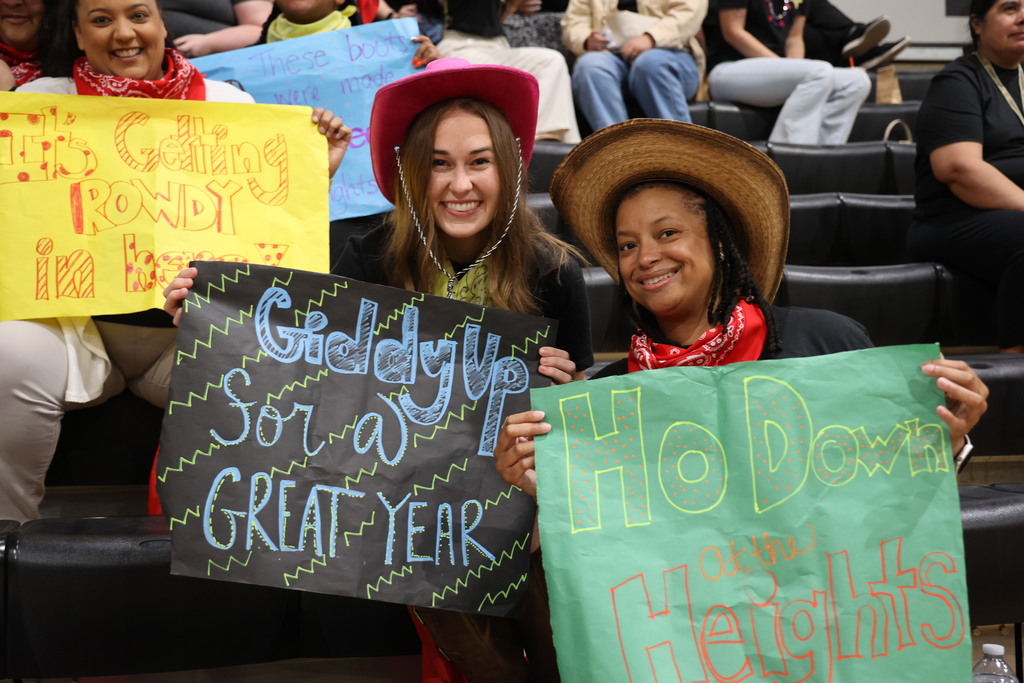 It's Getting
ROWDY
in
These boots
were made
Giddy Up
for a
GREAT YEAR
Ho Down
at the
Heights